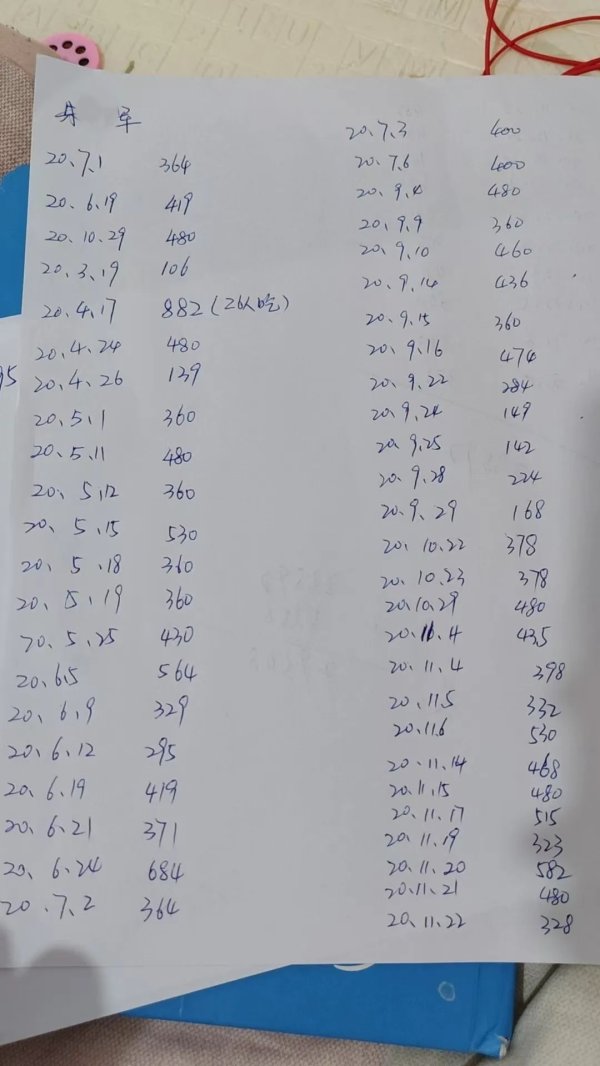 20、7、1 364
20、6、19 419
20、10、29 480
20、3、19 106
20、4、17 882（26人吃）
20、4、24 480
20、4、26 139
20、5、1 360
20、5、11 480
20、5、12 360
20、5、15 530
20、5、18 360
20、5、19 360
20、5、25 430
20、6、5 564
20、6、9 329
20、6、12 295
20、6、19 419
20、6、21 371
20、6、24 684
20、7、2 364
20、7、3 400
20、7、6 400
20、9、4 480
20、9、9 360
20、9、10 460
20、9、14 436
20、9、15 360
20、9、16 474
20、9、22 284
20、9、24 149
20、9、25 142
20、9、28 224
20、9、29 168
20、10、22 378
20、10、23 378
20、10、29 480
20、11、4 435
20、11、4 398
20、11、5 332
20、11、6 530
20、11、14 468
20、11、15 480
20、11、17 515
20、11、19 323
20、11、20 582
20、11、21 480
20、11、22 328